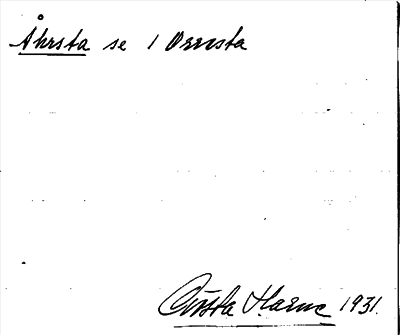 Åhrsta se 1 Orrsta
Gösta Harne 1931.